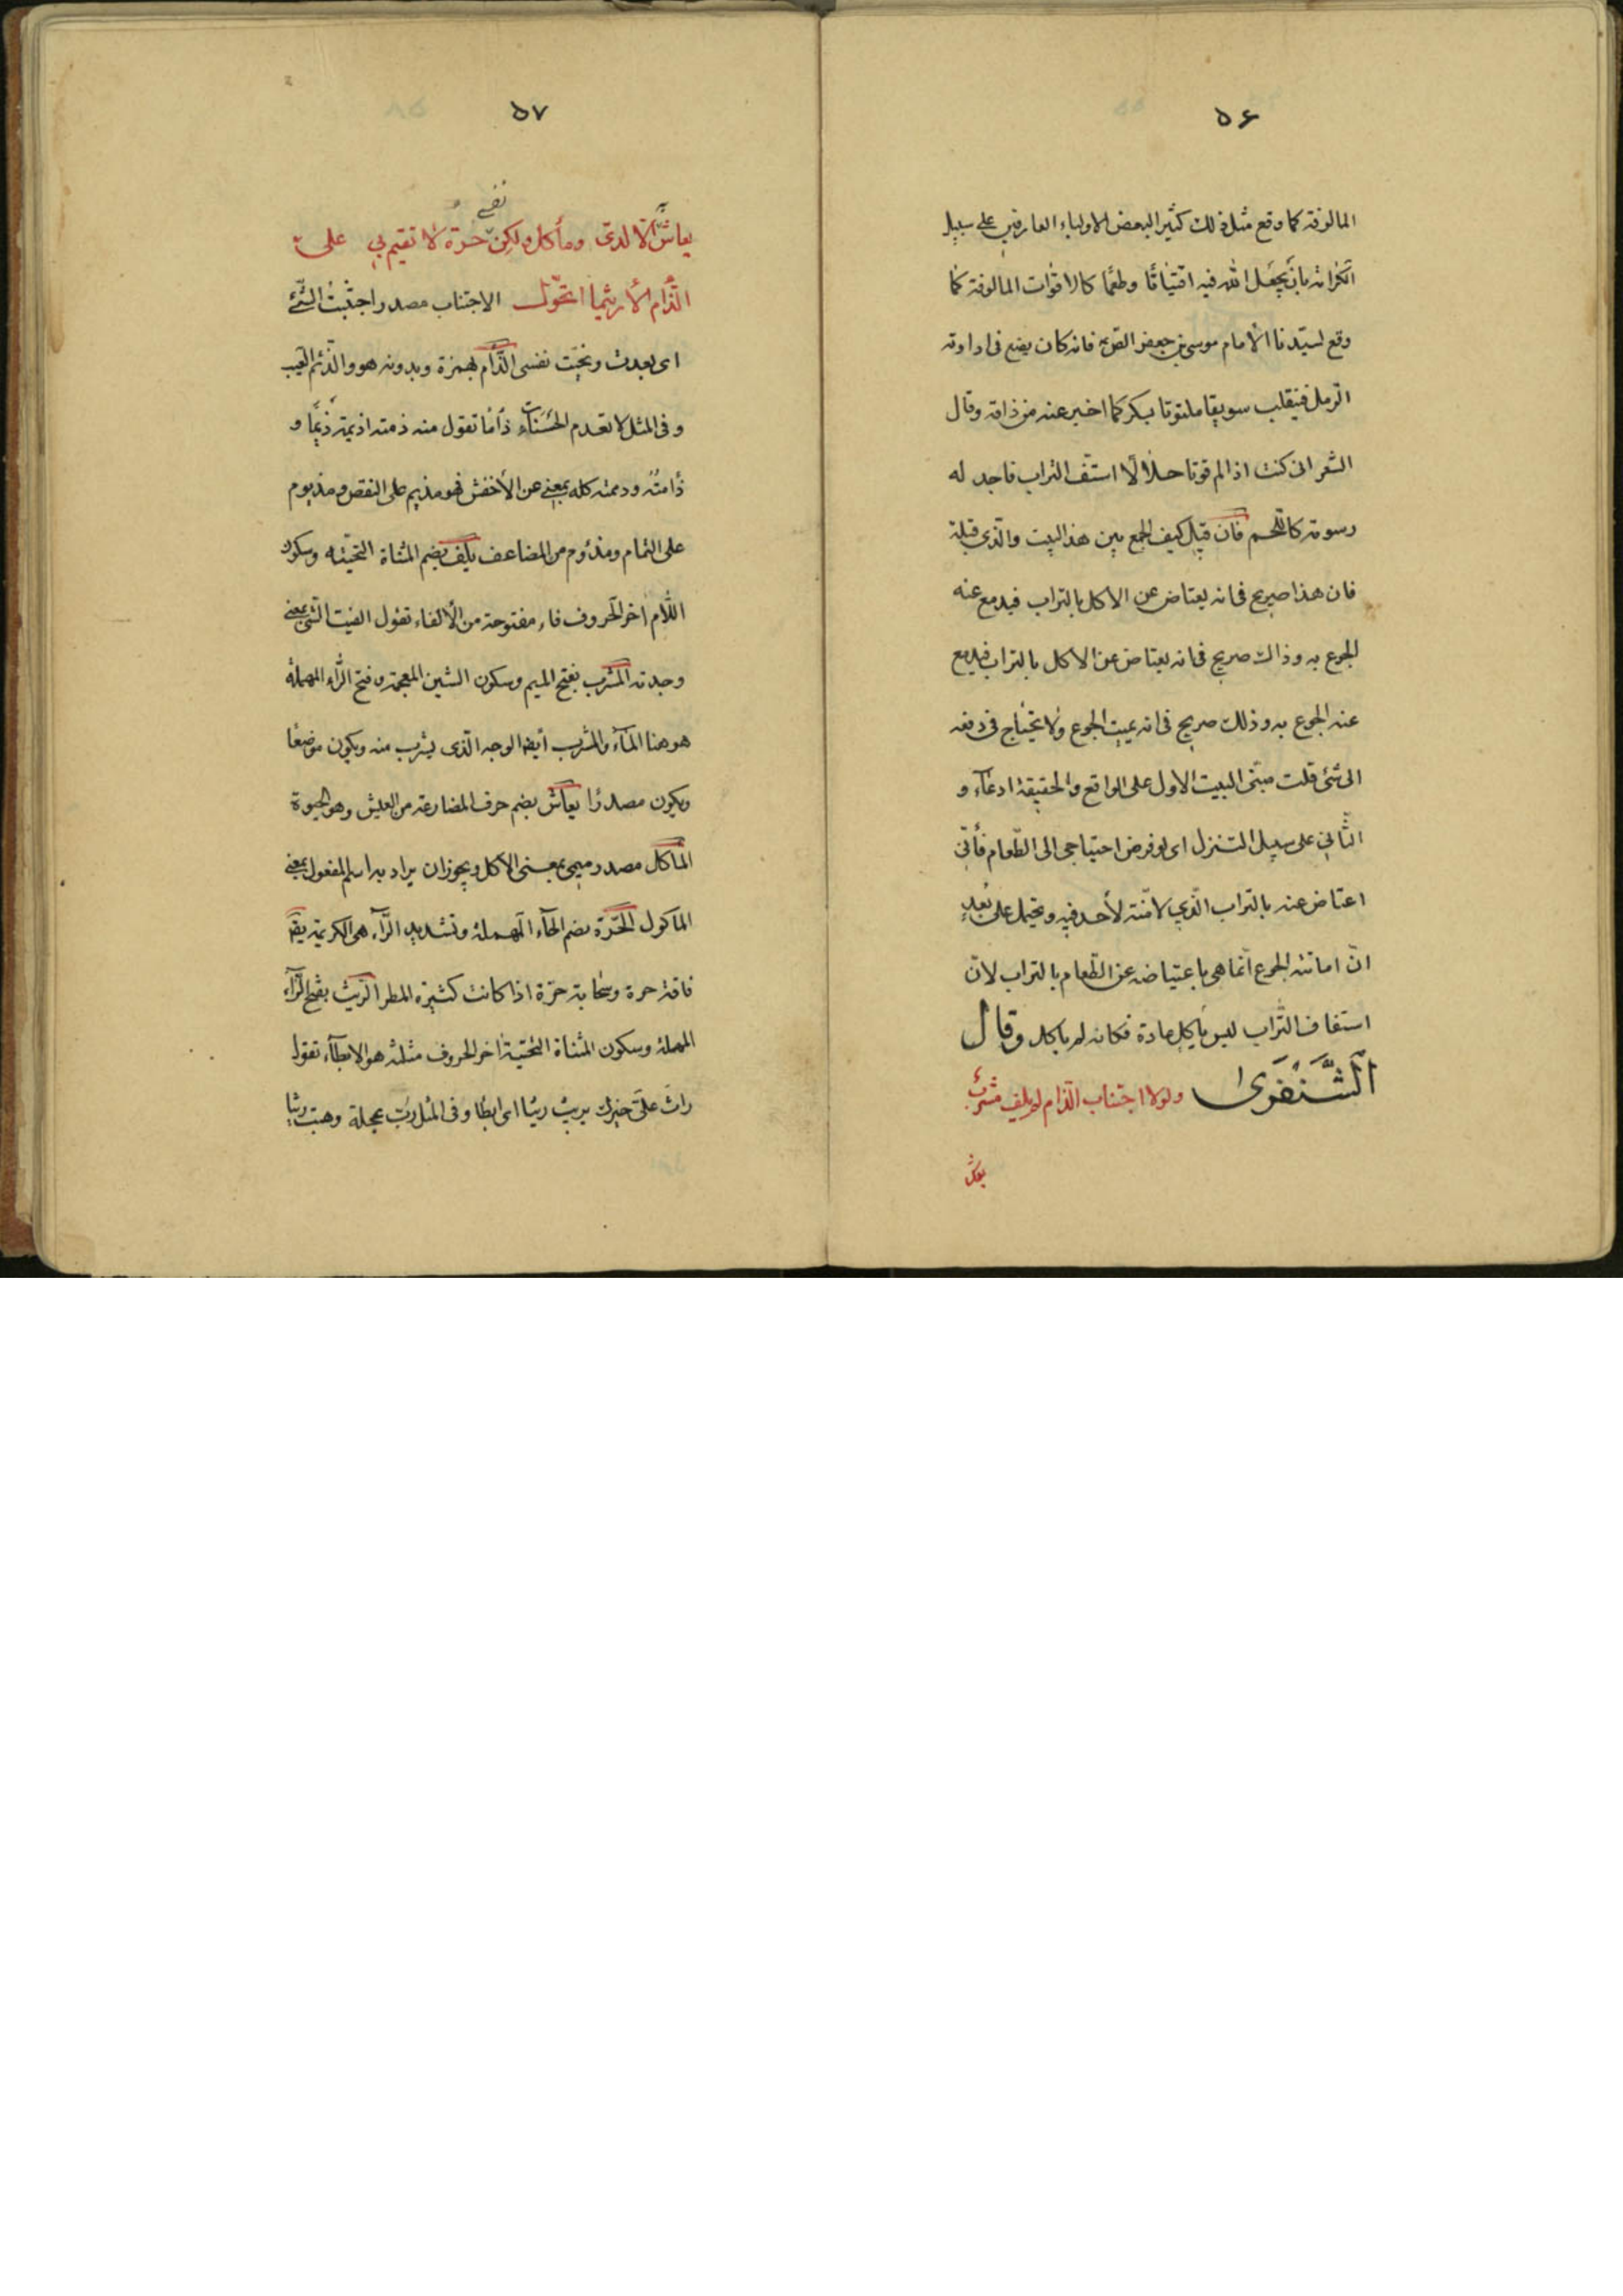 ٥٦
المالوفة كما وقع مثل ذلك كثيرا لبعض الاولياء العارفين على سبيل
الكرامة بان يجعل الله فيه اقتياتا وطعما كالاقوات المالوفة كما
وقع لسيدنا الامام موسى بن جعفر الصادق فانه كان يضع فى اداوته
الرمل فينقلب سويقا ملتوتا بسكر كما اخبر عنه من ذاقه وقال
الشعرانى كنت اذا لم قوتا حلالا استف التراب فاجد له
دسومة كاللحم فان قيل كيف الجمع بين هذا البيت والذى قبله
فان هذا صريح فى انه يعتاض عن الاكل بالتراب فيدفع عنه
الجوع به وذاك صريح فى انه يعتاض عن الاكل بالتراب فيدفع
عنه الجوع به وذلك صريح فى انه يميت الجوع ولا يحتاج فى دفعه
الى شئ قلت مبنى البيت الاول على الواقع والحقيقة ادعاء و
الثانى على سبيل التنزل اى لو فرض احتياجى الى الطعام فأنى
اعتاض عنه بالتراب الذى لا منة لأحد فيه ويحتمل على بُعدٍ
ان اماتته الجوع انما هى باعتياضه عن الطعام بالتراب لان
استفاف التراب ليس ياكل عادة فكانه لم ياكل وقال
الشَّنفَرى ولولا اجتناب الذام لم يلف مشرب
يعاش
٥٧
نفسى
يعاش به الا لدى ومأكل ولكن حرة لا تقيم بى على
الذام الا ريثما اتحول الاجتناب مصدر اجتنبت الشئ
اى بعدت ونجيت نفسى الذام بهمزة وبدونه هو والذئم العيب
وفى المثل لا تعدم الحسناء ذاما تقول منه ذمته اذيمه ذيما و
ذأمته وذممته كله بمعنى عن الأخفش فهو مذيم على النقص ومذيوم
على التمام ومذؤم من المضاعف يلف بضم المثناة التحتية وسكون
اللام اخر الحروف فاء مفتوحة من الألفاء تقول الفيت الشئ بمعنى
وجدته المشرب بفتح الميم وسكون الشين المعجمة وفتح الراء المهملة
هو هنا الماء والمشرب أيضا الوجه الذى يشرب منه ويكون موضعا
ويكون مصدرا يعاش بضم حرف المضارعة من العيش وهو الحيوة
المأكل مصدر ميمى بمعنى الأكل ويجوز ان يراد به اسلم المفعول بمعنى
الماكول الحرة بضم الحاء المهملة وتشديد الراء هى الكريمة يقم
ناقة حرة وسحابة حرة اذا كانت كثيرة المطر الريث بفتح الراء
المهملة وسكون المثناة التحتية اخر الحروف مثلثة هو الابطاء تقول
راث على خبرك يريث ريثا اى ابطا وفى المثل رب عجلة وهبت ريثا